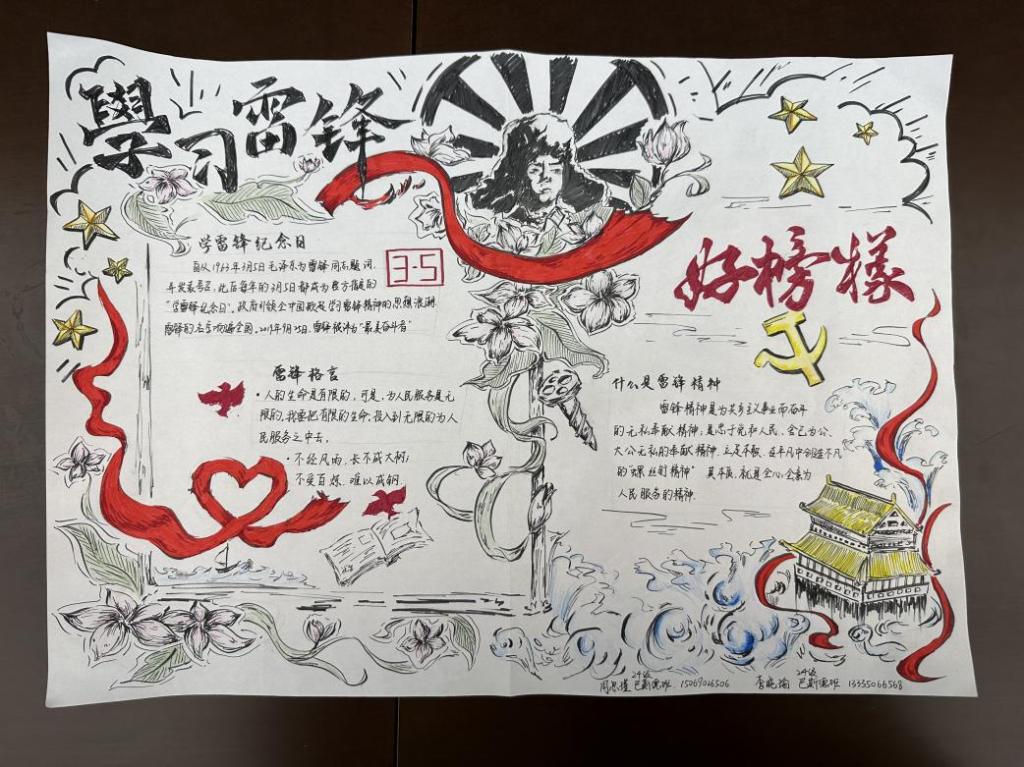 學习雷锋
好榜樣
学雷锋纪念日
3-5
自从1963年3月5日毛泽东为雷锋同志题词
并发表号召,此后每年的3月5日都成为官方指定的
"学雷锋纪念日"。政府引领全中国掀起学习雷锋精神的思想浪潮
雷锋的名字响遍全国。2019年9月25日,雷锋被评为"最美奋斗者"
雷锋格言
·人的生命是有限的,可是,为人民服务是无
限的,我要把有限的生命,投入到无限的为人
民服务之中去。
·不经风雨,长不成大树;
不受百炼,难以成钢。
什么是雷锋精神
雷锋精神是为共产主义事业而奋斗
的无私奉献精神,是忠于党和人民、舍己为公、
大公无私的奉献精神,立足本职、在平凡中创造不凡
的"螺丝钉精神" 其本质,就是全心全意为
人民服务的精神
24级
巴斯德班 15069026506
24级
李晓瑜 巴斯德班 13355066568